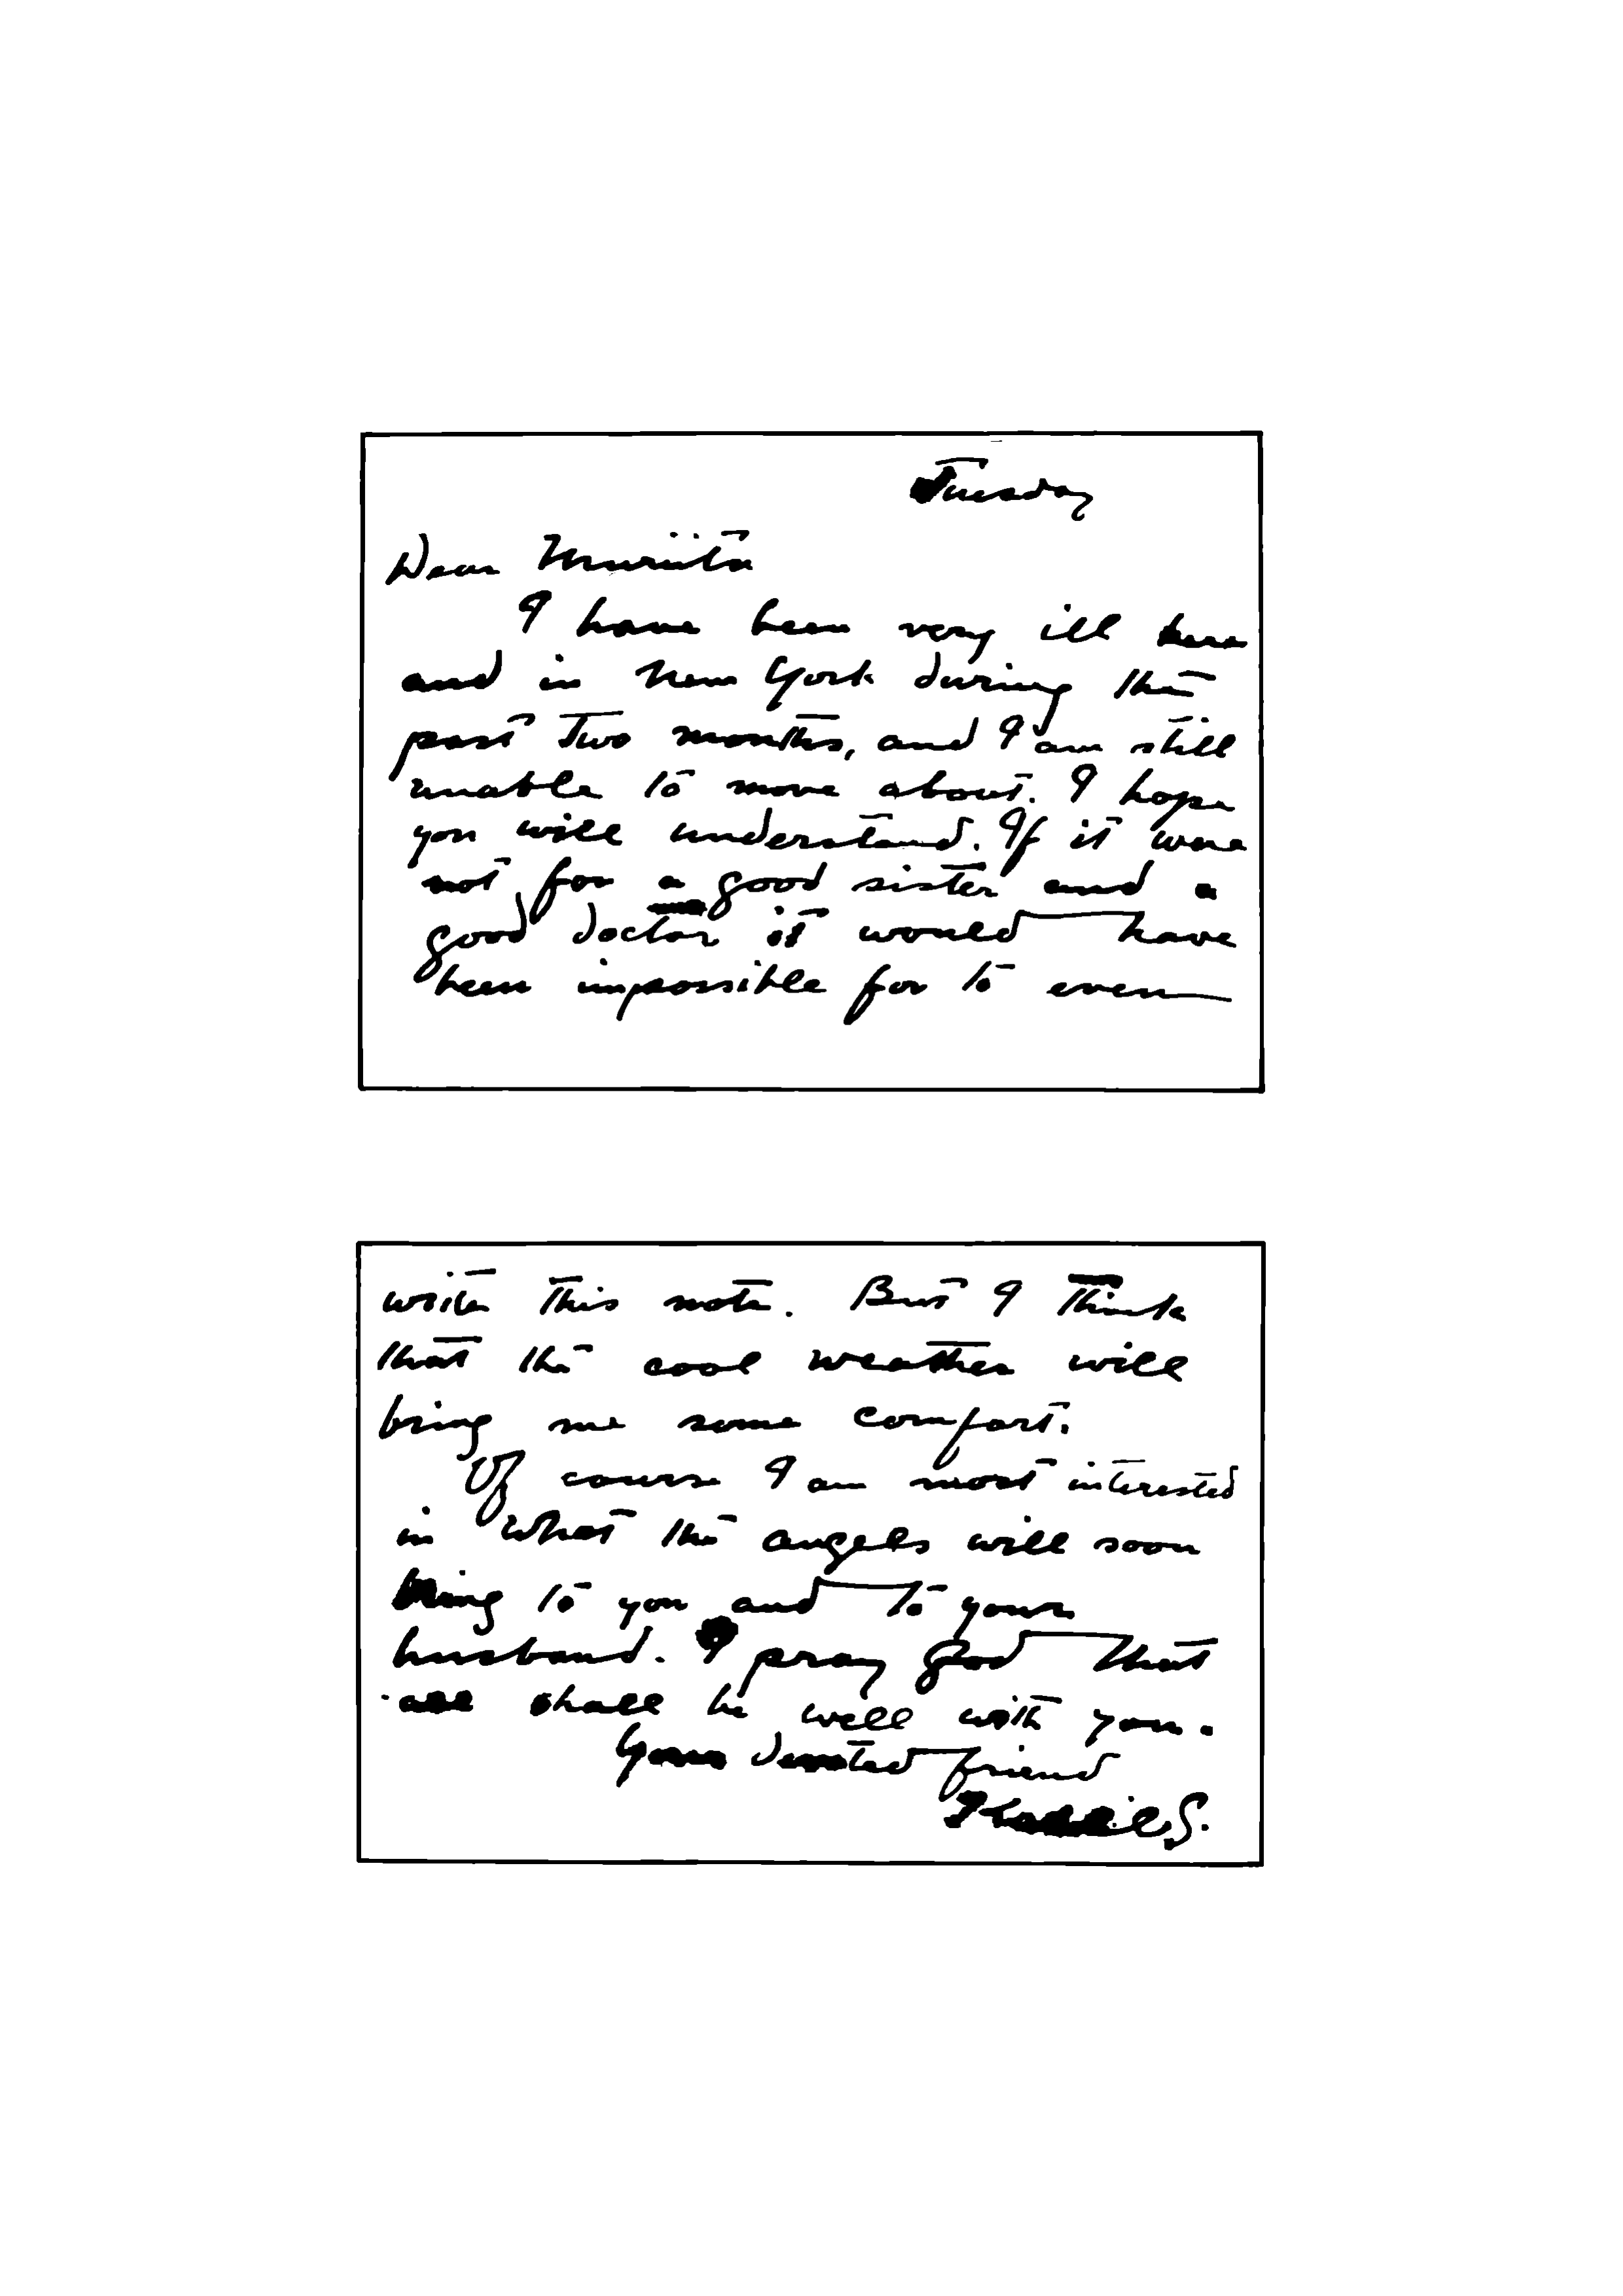 Tuesday
Dear Muriita
I have been very ill here
and in New York during the
past two months, and I am still
unable to move about. I hope
you will understand. If it were
not for a good sister and a
good doctor it would have
been impossible for to even
write this note. But I think
that the cool weather will
bring me some comfort.
Of course I am most interested
in what the angels will soon
bring to you and to your
husband. I pray God that
all shall be well with you.
Your devoted friend